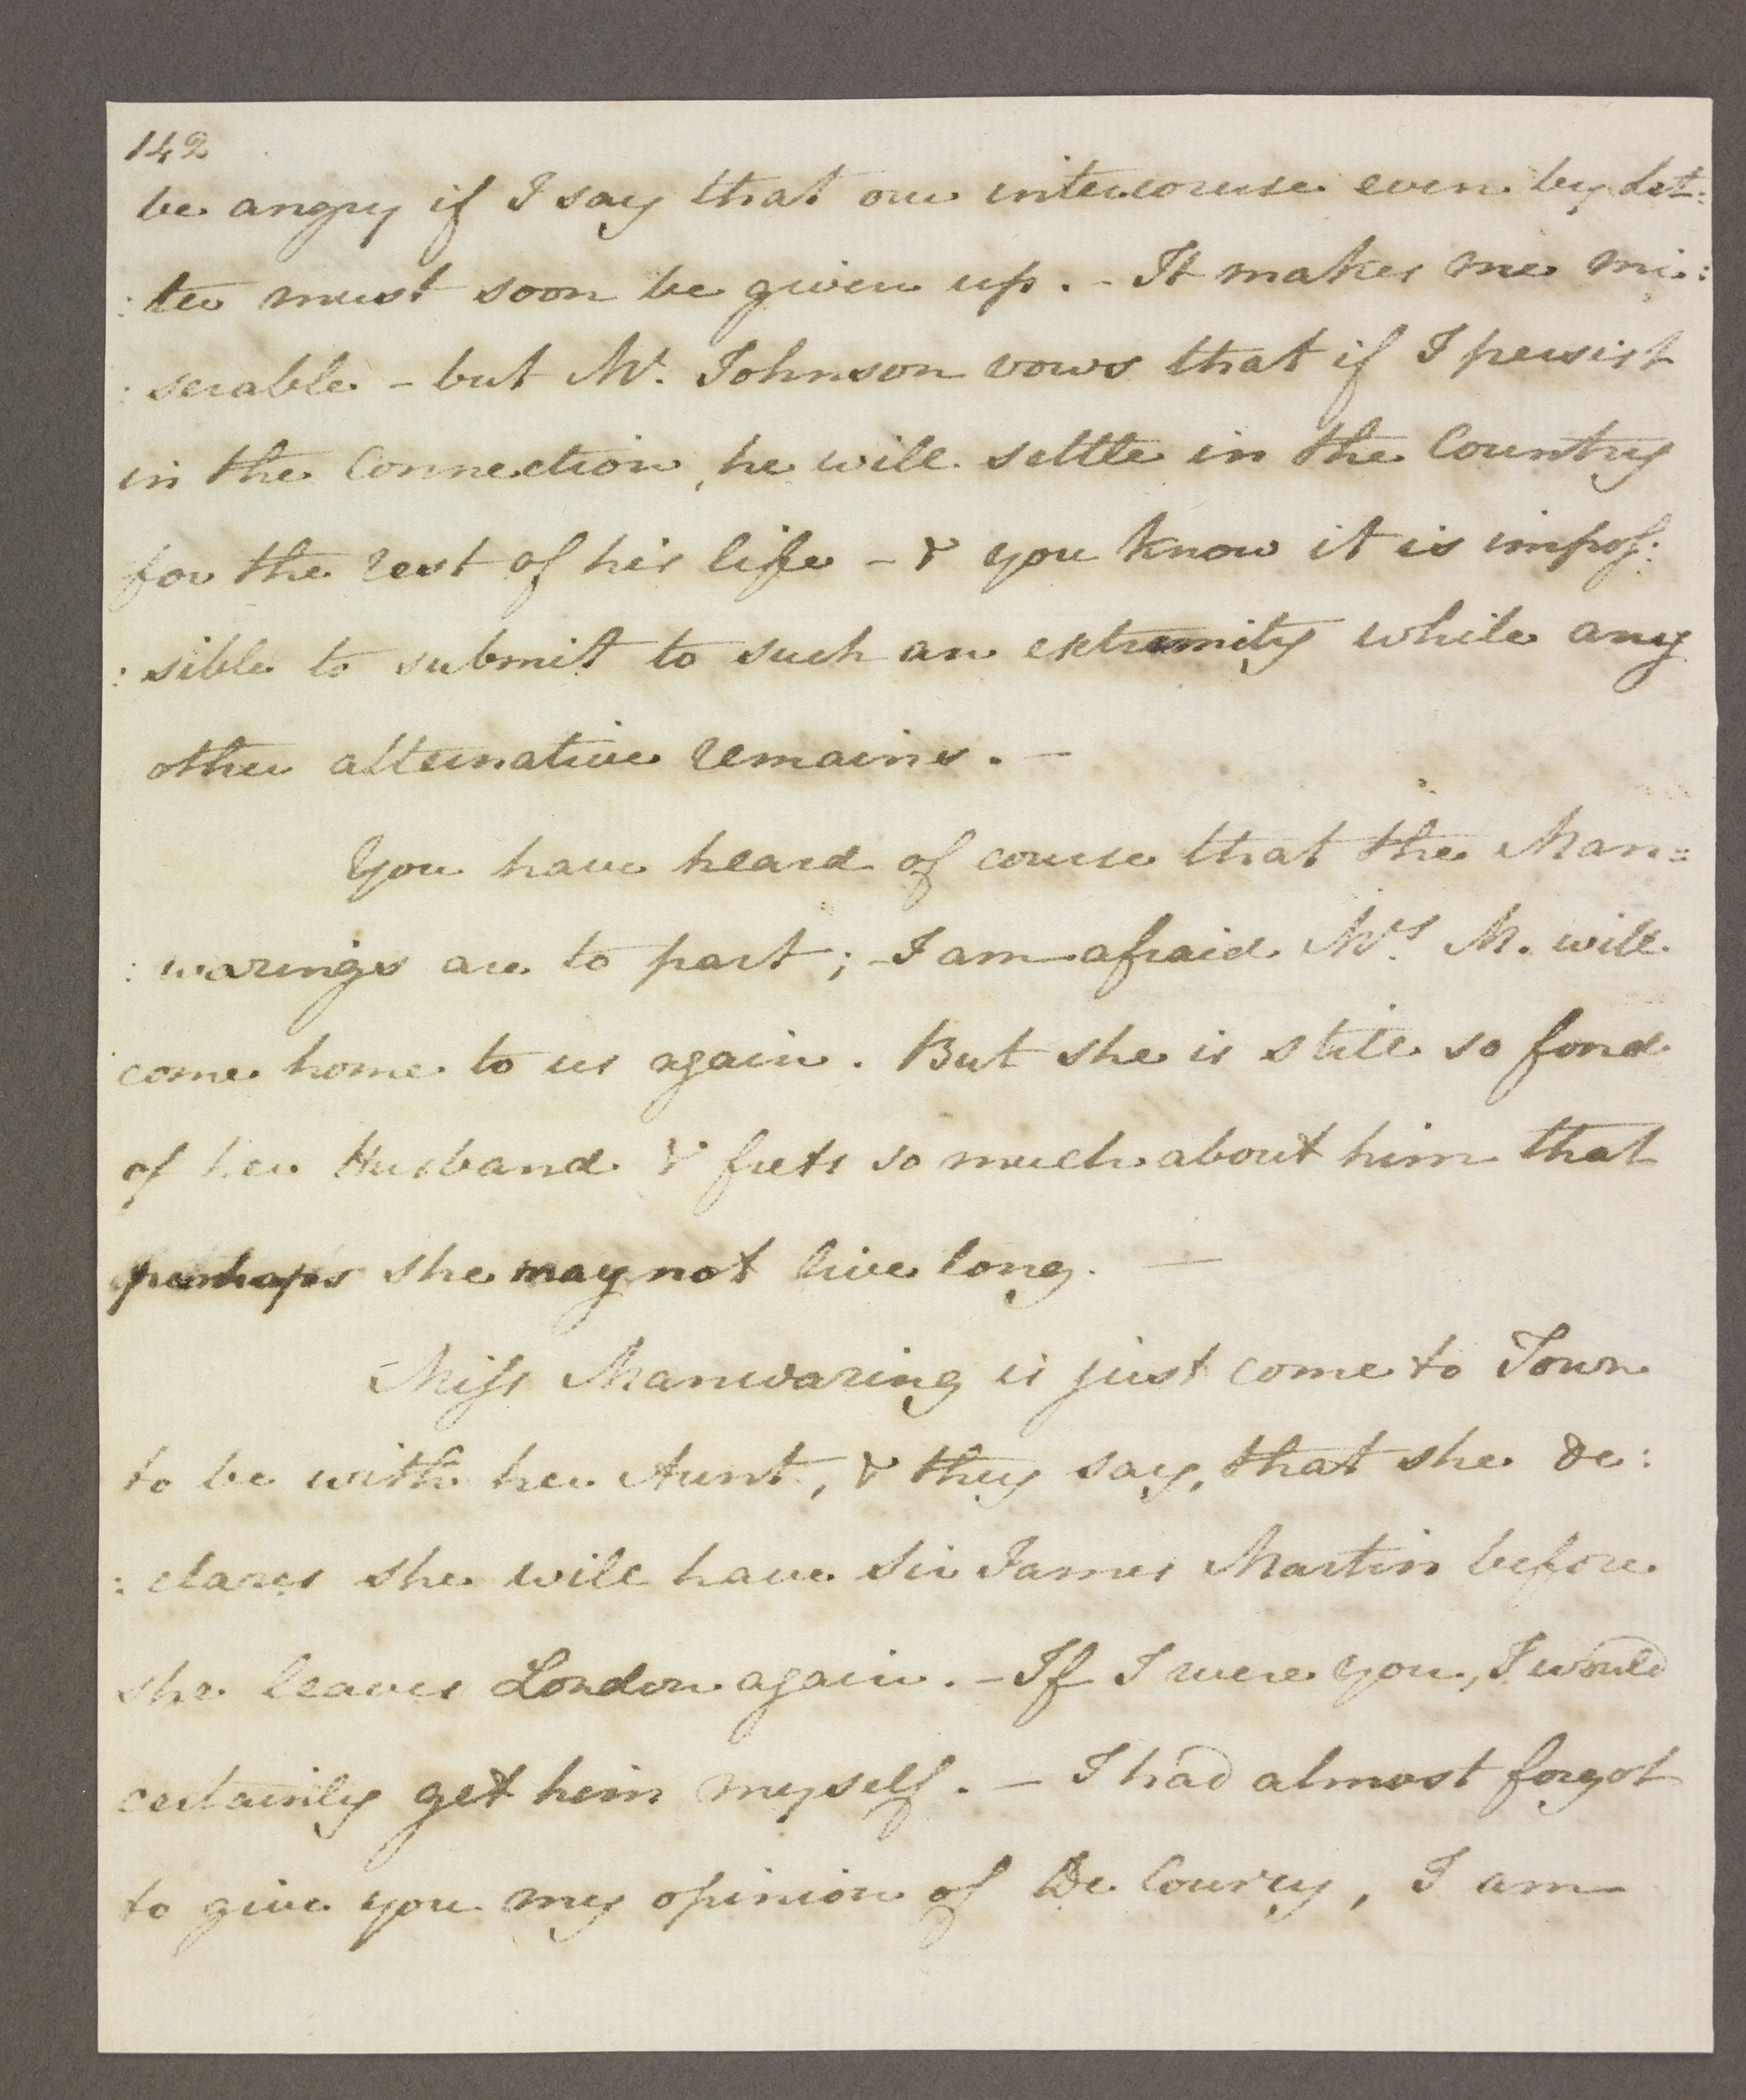 142
be angry if I say that our intercourse even by Let:
:ter must soon be given up. - It makes me mi:
:serable - but Mr. Johnson vows that if I persist
in the Connection, he will settle in the Country
for the rest of his life - & you know it is impos:
:sible to submit to such an extremity while any
other alternative remains. -
You have heard of course that the Man=
:warings are to part; I am afraid Mrs. M. will
come home to us again. But she is still so fond
of her Husband & frets so much about him that
perhaps she may not live long. -
Miss Manwaring is just come to Town
to be with her Aunt, & they say, that she de:
:clares she will have Sir James Martin before
she leaves London again. - If I were you, I would
certainly get him myself. - I had almost forgot
to give you my opinion of De Courcy, I am